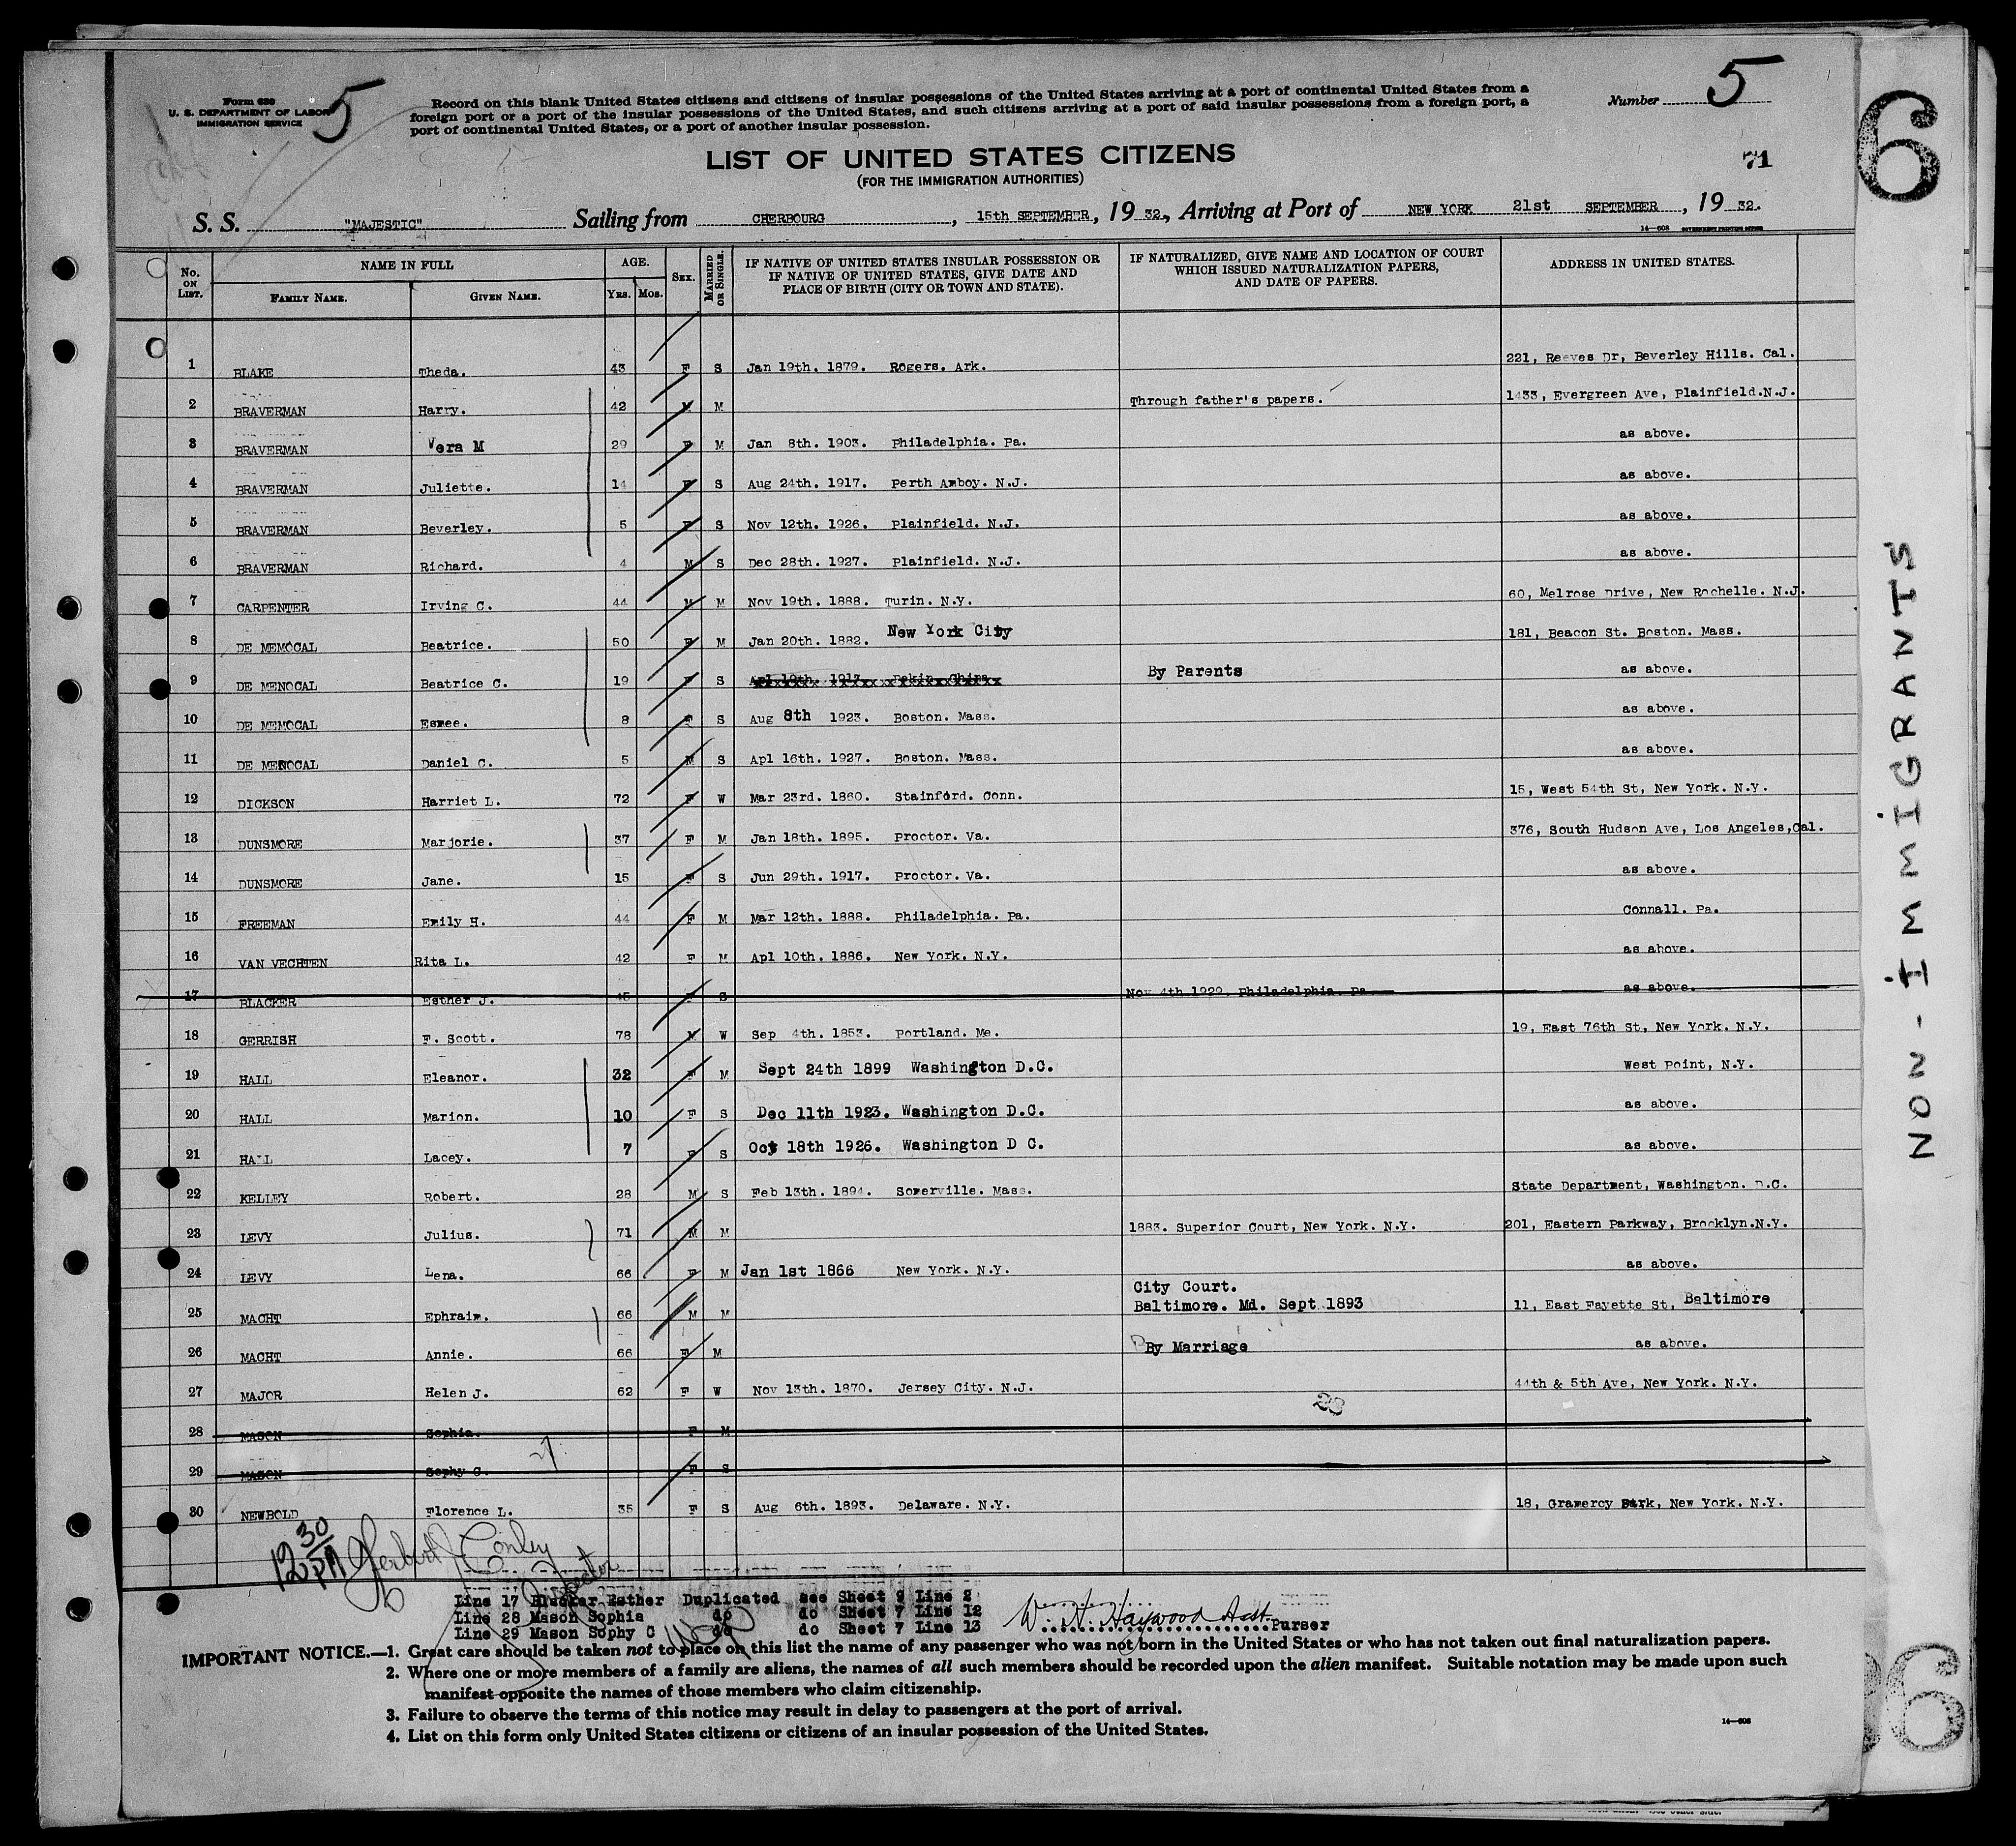 Form 630
U. S. DEPARTMENT OF LABOR
IMMIGRATION SERVICE
5
Record on this blank United States citizens and citizens of insular possessions of the United States arriving at a port of continental United States from a
foreign port or a port of the insular possessions of the United States, and such citizens arriving at a port of said insular possessions from a foreign port, a
port of continental United States, or a port of another insular possession.
Number 5
6
LIST OF UNITED STATES CITIZENS
(FOR THE IMMIGRATION AUTHORITIES)
71
S. S. "MAJESTIC" Sailing from CHERBOURG, 15th SEPTEMBER, 19 32., Arriving at Port of NEW YORK 21st SEPTEMBER, 19 32.
14—608 GOVERNMENT PRINTING OFFICE
No. ON LIST. NAME IN FULL FAMILY NAME. GIVEN NAME. AGE. YRS. MOS. SEX. MARRIED OR SINGLE. IF NATIVE OF UNITED STATES INSULAR POSSESSION OR IF NATIVE OF UNITED STATES, GIVE DATE AND PLACE OF BIRTH (CITY OR TOWN AND STATE). IF NATURALIZED, GIVE NAME AND LOCATION OF COURT WHICH ISSUED NATURALIZATION PAPERS, AND DATE OF PAPERS. ADDRESS IN UNITED STATES.
1 BLAKE Theda. 43 F S Jan 19th. 1879. Rogers. Ark. 221, Reeves Dr, Beverley Hills. Cal.
2 BRAVERMAN Harry. 42 M M Through father's papers. 1433, Evergreen Ave, Plainfield.N.J.
3 BRAVERMAN Vera M 29 F M Jan 8th. 1903. Philadelphia. Pa. as above.
4 BRAVERMAN Juliette. 14 F S Aug 24th. 1917. Perth Amboy. N.J. as above.
5 BRAVERMAN Beverley. 5 F S Nov 12th. 1926. Plainfield. N.J. as above.
6 BRAVERMAN Richard. 4 M S Dec 28th. 1927. Plainfield. N.J. as above.
7 CARPENTER Irving C. 44 M M Nov 19th. 1888. Turin. N.Y. 60, Melrose Drive, New Rochelle. N.J.
8 DE MEMOCAL Beatrice. 50 F M Jan 20th. 1882. New York City 181, Beacon St. Boston. Mass.
9 DE MENOCAL Beatrice C. 19 F S Apl 19th. 1913. Pekin. China By Parents as above.
10 DE MEMOCAL Esmee. 8 F S Aug 8th 1923. Boston. Mass. as above.
11 DE MENOCAL Daniel C. 5 M S Apl 16th. 1927. Boston. Mass. as above.
12 DICKSON Harriet L. 72 F W Mar 23rd. 1860. Stainford. Conn. 15, West 54th St, New York. N.Y.
13 DUNSMORE Marjorie. 37 F M Jan 18th. 1895. Proctor. Va. 376, South Hudson Ave, Los Angeles,Cal.
14 DUNSMORE Jane. 15 F S Jun 29th. 1917. Proctor. Va. as above.
15 FREEMAN Emily H. 44 F M Mar 12th. 1888. Philadelphia. Pa. Connall. Pa.
16 VAN VECHTEN Rita L. 42 F M Apl 10th. 1886. New York. N.Y. as above.
17 BLACKER Esther J. 45 F S Nov 4th.1929. Philadelphia. Pa as above.
18 GERRISH F. Scott. 78 M W Sep 4th. 1853. Portland. Me. 19, East 76th St, New York. N.Y.
19 HALL Eleanor. 32 F M Sept 24th 1899 Washington D.C. West Point, N.Y.
20 HALL Marion. 10 F S Dec 11th 1923. Washington D.C. as above.
21 HALL Lacey. 7 F S Oct 18th 1926. Washington D C. as above.
22 KELLEY Robert. 28 M S Feb 13th. 1894. Somerville. Mass. State Department, Washington. D.C.
23 LEVY Julius. 71 M M 1883. Superior Court, New York. N.Y. 201, Eastern Parkway, Brooklyn.N.Y.
24 LEVY Lena. 66 F M Jan 1st 1866 New York. N.Y. as above.
25 MACHT Ephraim. 66 M M City Court. Baltimore. Md. Sept 1893 11, East Fayette St, Baltimore
26 MACHT Annie. 66 F M By Marriage as above.
27 MAJOR Helen J. 62 F W Nov 13th. 1870. Jersey City. N.J. 44th & 5th Ave, New York. N.Y.
28 MASON Sophia. F M
29 MASON Sophy C. F S
30 NEWBOLD Florence L. 35 F S Aug 6th. 1893. Delaware. N.Y. 18, Gramercy Park, New York. N.Y.
12 30 PM Herbert J Conley
Inspector
Line 17 Blacker Esther Duplicated see Sheet 9 Line 2
Line 28 Mason Sophia do do Sheet 7 Line 12
Line 29 Mason Sophy C do do Sheet 7 Line 13
W. H. Haywood Asst. Purser
IMPORTANT NOTICE.—1. Great care should be taken not to place on this list the name of any passenger who was not born in the United States or who has not taken out final naturalization papers.
2. Where one or more members of a family are aliens, the names of all such members should be recorded upon the alien manifest. Suitable notation may be made upon such
manifest opposite the names of those members who claim citizenship.
3. Failure to observe the terms of this notice may result in delay to passengers at the port of arrival.
4. List on this form only United States citizens or citizens of an insular possession of the United States.
14—608
NON-IMMIGRANTS